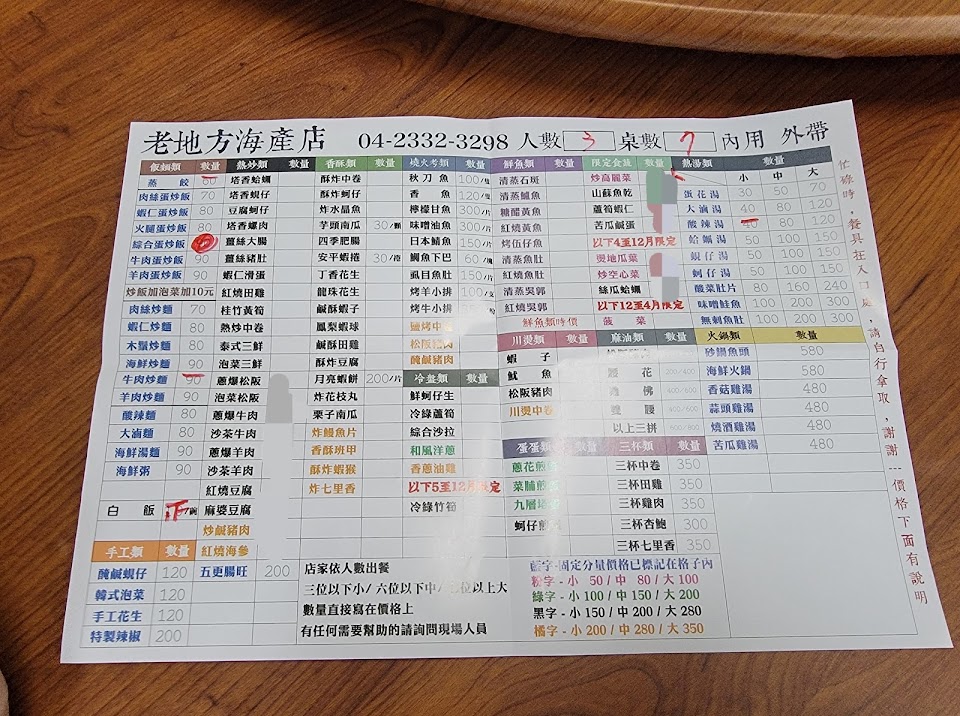 老地方海產店 04-2332-3298 人數 3 桌數 7 內用 外帶
飯麵類 數量
蒸餃 60
肉絲蛋炒飯 70
蝦仁蛋炒飯 80
火腿蛋炒飯 80
綜合蛋炒飯
牛肉蛋炒飯 90
羊肉蛋炒飯 90
炒飯加泡菜加10元
肉絲炒麵 70
蝦仁炒麵 80
木鬚炒麵 80
海鮮炒麵 90
牛肉炒麵 90
羊肉炒麵 90
酸辣麵 80
大滷麵 80
海鮮湯麵 90
海鮮粥 90
白飯
手工類 數量
醃鹹蜆仔 120
韓式泡菜 120
手工花生 120
特製辣椒 200
熱炒類 數量
塔香蛤蠣
塔香蜆仔
豆腐蚵仔
塔香螺肉
薑絲大腸
薑絲豬肚
蝦仁滑蛋
紅燒田雞
桂竹黃筍
熱炒中卷
泰式三鮮
泡菜三鮮
蔥爆松阪
泡菜松阪
蔥爆牛肉
沙茶牛肉
蔥爆羊肉
沙茶羊肉
紅燒豆腐
麻婆豆腐
炒鹹豬肉
紅燒海參
五更腸旺 200
香酥類 數量
酥炸中卷
酥炸蚵仔
炸水晶魚
芋頭南瓜 30/顆
四季肥腸
安平蝦捲 30/捲
丁香花生
龍珠花生
鹹酥蝦子
鳳梨蝦球
鹹酥田雞
酥炸豆腐
月亮蝦餅 200/片
炸花枝丸
栗子南瓜
炸鰻魚片
香酥班甲
酥炸蝦猴
炸七里香
燒火考類 數量
秋刀魚 100/隻
香魚 120/隻
檸檬甘魚 300/片
味噌油魚 100/片
日本鯖魚 150/片
鯛魚下巴 60/塊
虱目魚肚 150/片
烤羊小排 100/支
烤牛小排
鹽烤中卷
松阪豬肉
醃鹹豬肉
冷盤類 數量
鮮蚵仔生
冷綠蘆筍
綜合沙拉
和風洋蔥
香蔥油雞
以下5至12月限定
冷綠竹筍
鮮魚類 數量
清蒸石斑
清蒸鱸魚
糖醋黃魚
紅燒黃魚
烤伍仔魚
清蒸魚肚
紅燒魚肚
清蒸吳郭
紅燒吳郭
鮮魚類時價
川燙類 數量
蝦子
魷魚
松阪豬肉
川燙中卷
蛋蛋類
蔥花煎蛋
菜脯煎蛋
九層塔
蚵仔煎
限定食蔬 數量
炒高麗菜
山蘇魚乾
蘆筍蝦仁
苦瓜鹹蛋
以下4至12月限定
燙地瓜葉
炒空心菜
絲瓜蛤蠣
以下12至4月限定
菠菜
麻油類 數量
花 200/400
佛 400/600
腰 400/600
以上三拼 600/800
三杯類 數量
三杯中卷 350
三杯田雞 350
三杯雞肉 350
三杯杏鮑 300
三杯七里香 350
熱湯類 數量
小 中 大
蛋花湯 30 50 70
大滷湯 40 80 120
酸辣湯 40 80 120
蛤蠣湯 50 100 150
蜆仔湯 50 100 150
蚵仔湯 50 100 150
酸菜肚片 80 160 240
味噌鮭魚 100 200 300
無刺魚肚 100 200 300
火鍋類 數量
砂鍋魚頭 580
海鮮火鍋 580
香菇雞湯 480
蒜頭雞湯 480
燒酒雞湯 480
苦瓜雞湯 480
店家依人數出餐
三位以下小/六位以下中/七位以上大
數量直接寫在價格上
有任何需要幫助的請詢問現場人員
藍字-固定分量價格已標記在格子內
粉字 - 小 50 / 中 80 / 大 100
綠字 - 小 100 / 中 150 / 大 200
黑字 - 小 150 / 中 200 / 大 280
橘字 - 小 200 / 中 280 / 大 350
忙碌時，餐具在入口處，請自行拿取，謝謝---價格下面有說明